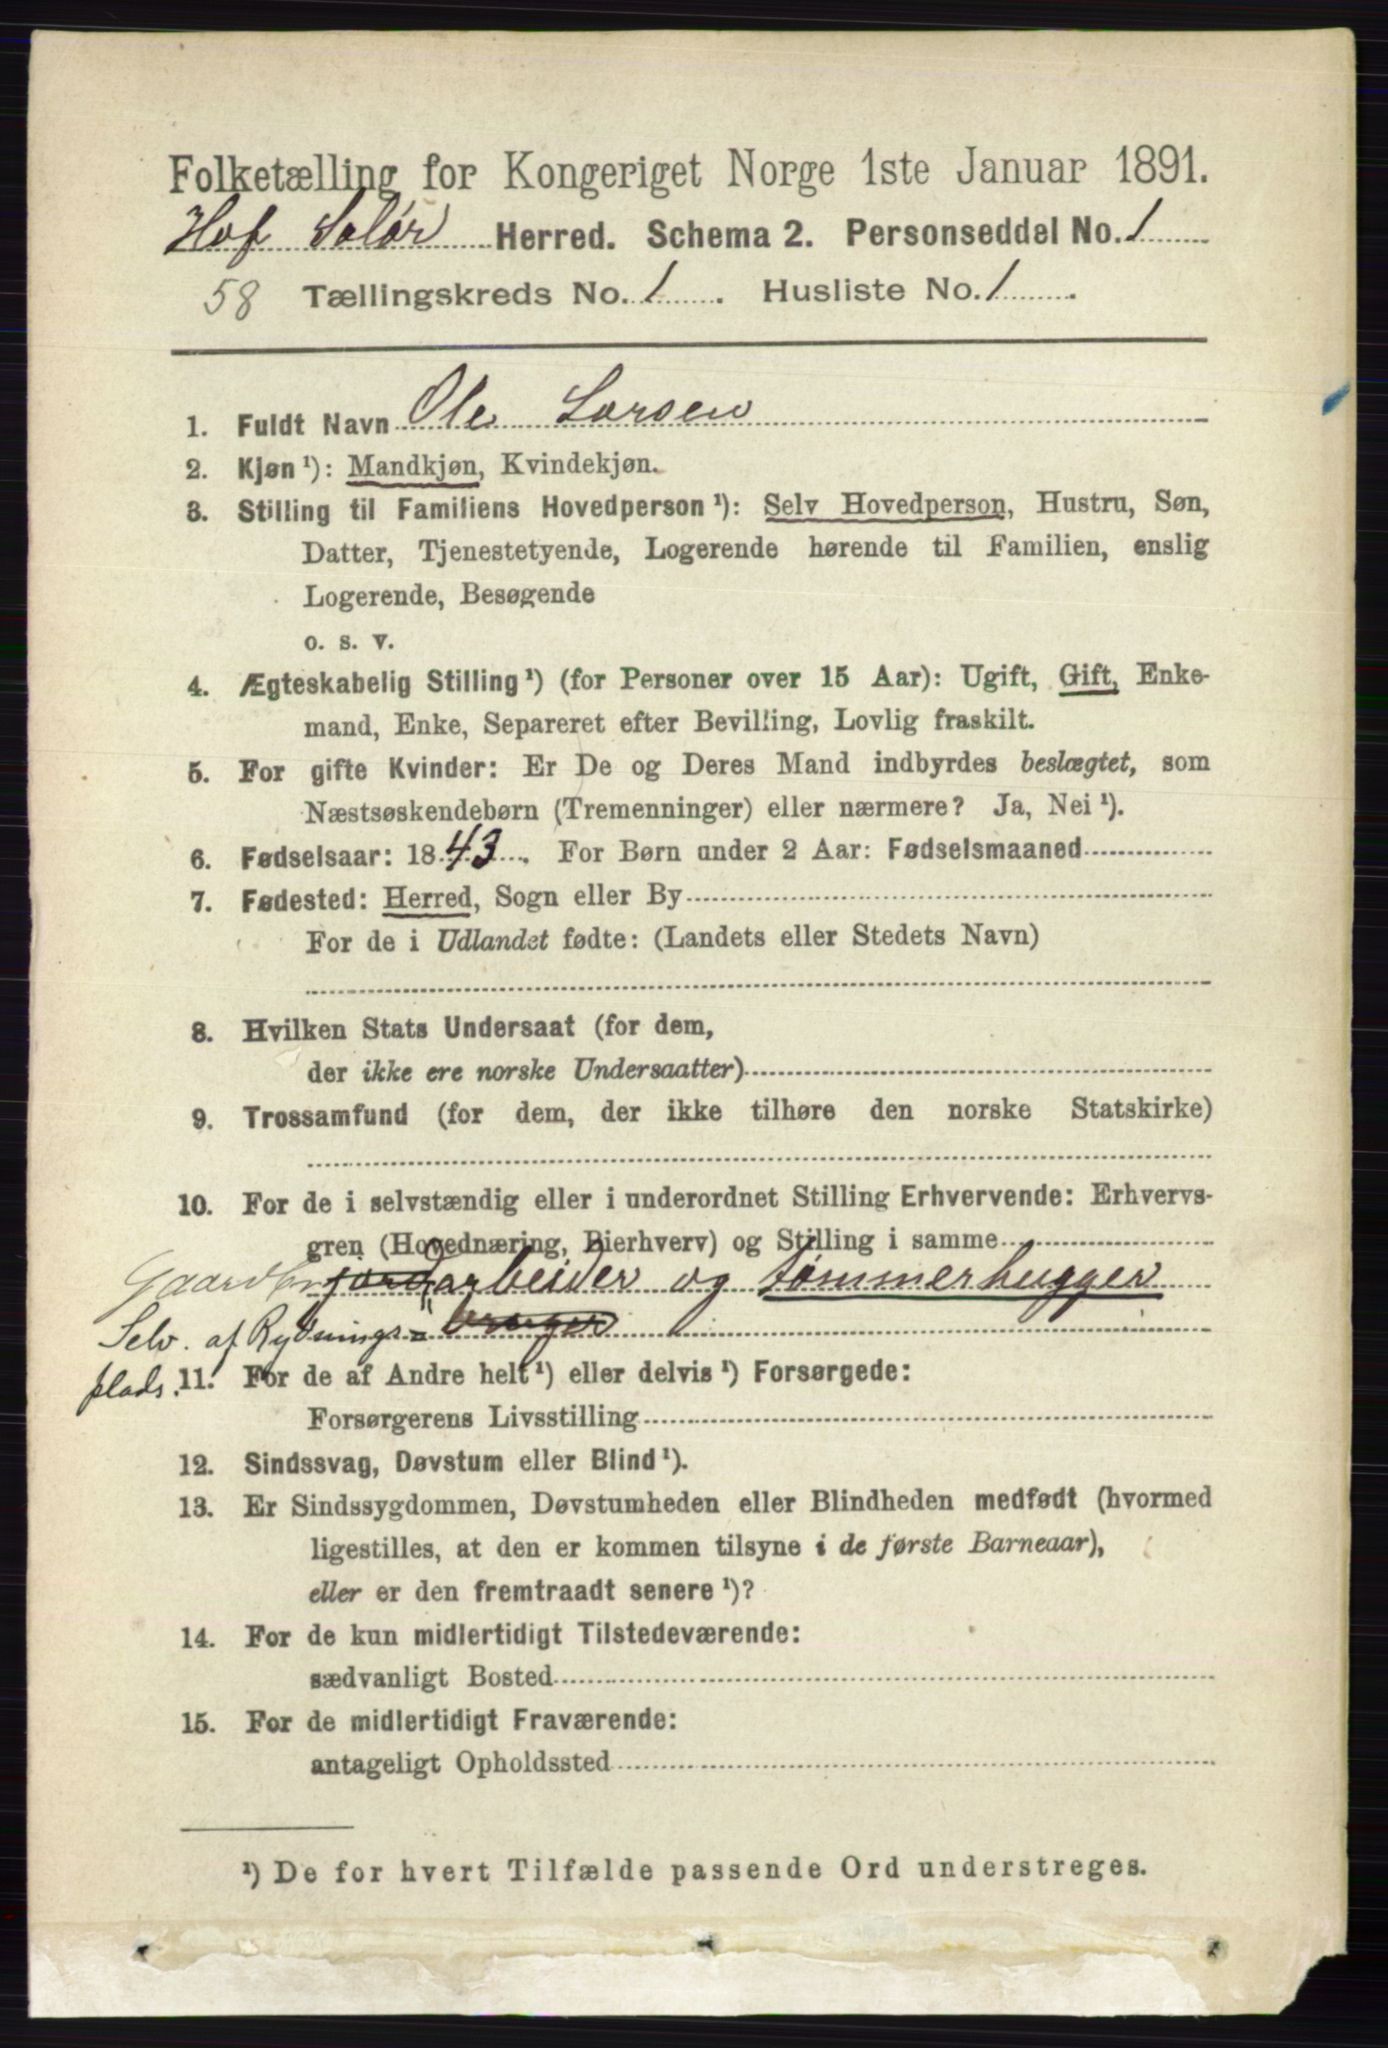 Folketælling for Kongeriget Norge 1ste Januar 1891.
Hof Solør Herred. Schema 2. Personseddel No. 1
58 Tællingskreds No. 1. Husliste No. 1.
1. Fuldt Navn Ole Larsen
2. Kjøn ¹): Mandkjøn, Kvindekjøn.
3. Stilling til Familiens Hovedperson ¹): Selv Hovedperson, Hustru, Søn,
Datter, Tjenestetyende, Logerende hørende til Familien, enslig
Logerende, Besøgende
o. s. v.
4. Ægteskabelig Stilling ¹) (for Personer over 15 Aar): Ugift, Gift, Enke-
mand, Enke, Separeret efter Bevilling, Lovlig fraskilt.
5. For gifte Kvinder: Er De og Deres Mand indbyrdes beslægtet, som
Næstsøskendebørn (Tremenninger) eller nærmere? Ja, Nei ¹).
6. Fødselsaar: 1843. For Børn under 2 Aar: Fødselsmaaned
7. Fødested: Herred, Sogn eller By
For de i Udlandet fødte: (Landets eller Stedets Navn)
8. Hvilken Stats Undersaat (for dem,
der ikke ere norske Undersaatter)
9. Trossamfund (for dem, der ikke tilhøre den norske Statskirke)
10. For de i selvstændig eller i underordnet Stilling Erhvervende: Erhvervs-
gren (Hovednæring, Bierhverv) og Stilling i samme
Gaardbr jordarbeider og tømmerhugger
Selv. af Rydnings= bruger
plads.
11. For de af Andre helt ¹) eller delvis ¹) Forsørgede:
Forsørgerens Livsstilling
12. Sindssvag, Døvstum eller Blind ¹).
13. Er Sindssygdommen, Døvstumheden eller Blindheden medfødt (hvormed
ligestilles, at den er kommen tilsyne i de første Barneaar),
eller er den fremtraadt senere ¹)?
14. For de kun midlertidigt Tilstedeværende:
sædvanligt Bosted
15. For de midlertidigt Fraværende:
antageligt Opholdssted
¹) De for hvert Tilfælde passende Ord understreges.